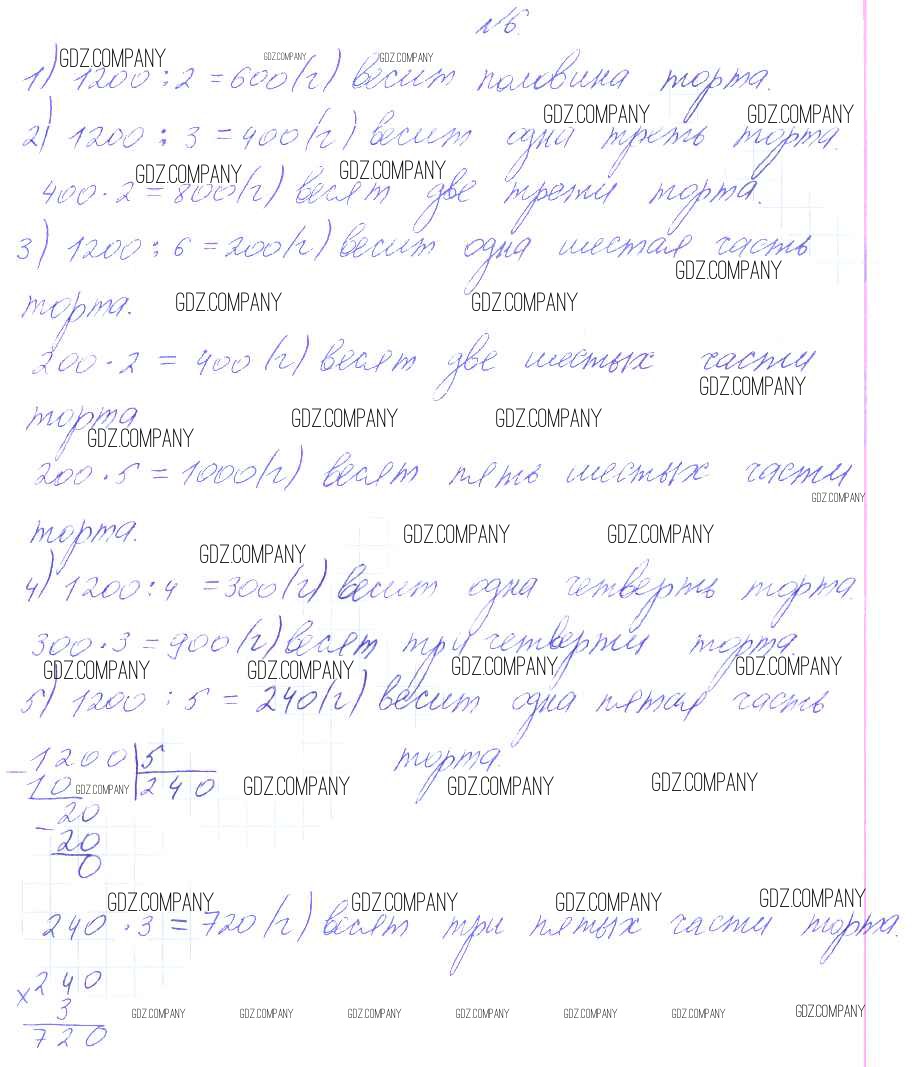 №6.
GDZ.COMPANY GDZ.COMPANY GDZ.COMPANY
1) 1200 : 2 = 600 (г) весит половина торта.
GDZ.COMPANY GDZ.COMPANY
2) 1200 : 3 = 400 (г) весит одна треть торта.
GDZ.COMPANY GDZ.COMPANY
400 · 2 = 800 (г) весят две трети торта.
3) 1200 : 6 = 200 (г) весит одна шестая часть
GDZ.COMPANY
торта. GDZ.COMPANY GDZ.COMPANY
200 · 2 = 400 (г) весят две шестых части
GDZ.COMPANY
торта GDZ.COMPANY GDZ.COMPANY
GDZ.COMPANY
200 · 5 = 1000 (г) весят пять шестых части
GDZ.COMPANY
торта. GDZ.COMPANY GDZ.COMPANY
GDZ.COMPANY
4) 1200 : 4 = 300 (г) весит одна четверть торта.
300 · 3 = 900 (г) весят три четверти торта.
GDZ.COMPANY GDZ.COMPANY GDZ.COMPANY GDZ.COMPANY
5) 1200 : 5 = 240 (г) весит одна пятая часть
- 1200 5 торта.
10 GDZ.COMPANY 240 GDZ.COMPANY GDZ.COMPANY GDZ.COMPANY
- 20
20
0
GDZ.COMPANY GDZ.COMPANY GDZ.COMPANY GDZ.COMPANY
240 · 3 = 720 (г) весят три пятых части торта.
× 240
3 GDZ.COMPANY GDZ.COMPANY GDZ.COMPANY GDZ.COMPANY GDZ.COMPANY GDZ.COMPANY GDZ.COMPANY
720